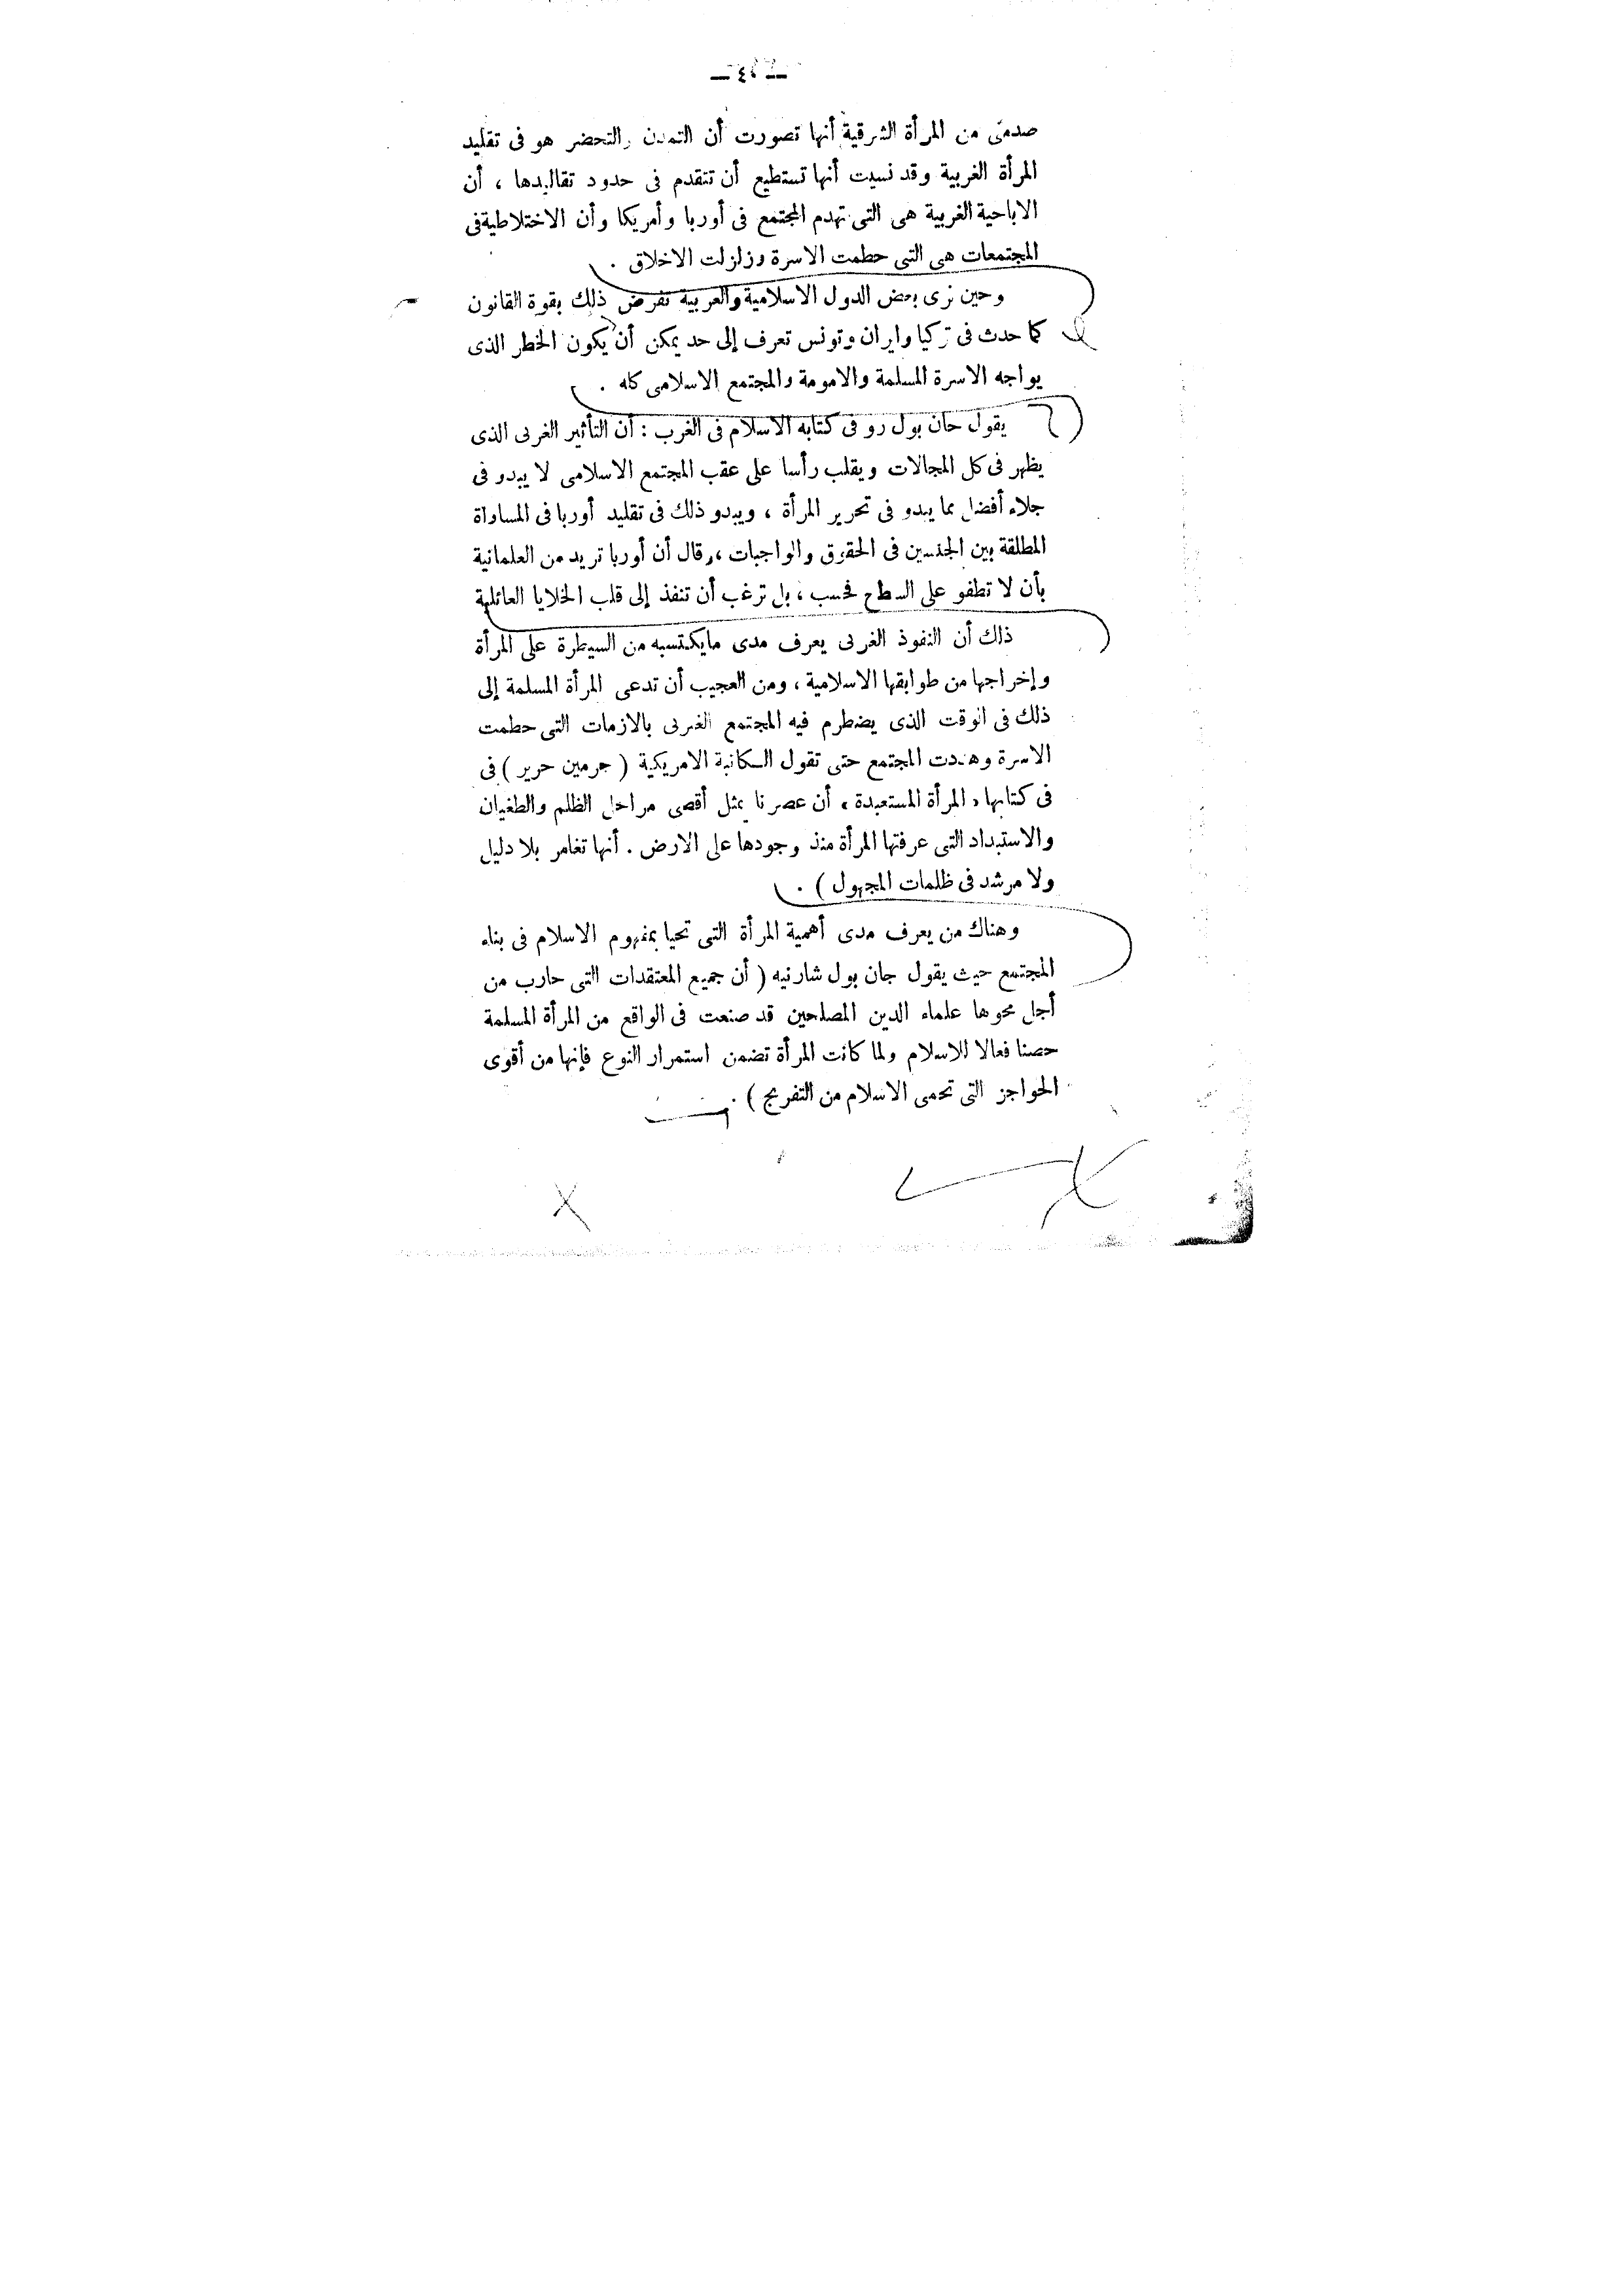 صدمتى من المرأة الشرقية أنها تصورت أن التمدن والتحضر هو فى تقليد
المرأة الغربية وقد نسيت أنها تستطيع أن تتقدم فى حدود تقاليدها ، أن
الاباحية الغربية هى التى تهدم المجتمع فى أوربا وأمريكا وأن الاختلاطية فى
المجتمعات هى التى حطمت الاسرة وزلزلت الاخلاق .
وحين نرى بعض الدول الاسلامية والعربية تفرض ذلك بقوة القانون
كما حدث فى تركيا وايران وتونس تعرف إلى حد يمكن أن يكون الخطر الذى
يواجه الاسرة المسلمة والامومة والمجتمع الاسلامى كله .
يقول جان بول رو فى كتابه الاسلام فى الغرب : أن التأثير الغربى الذى
يظهر فى كل المجالات ويقلب رأسا على عقب المجتمع الاسلامى لا يبدو فى
جلاء أفضل مما يبدو فى تحرير المرأة ، ويبدو ذلك فى تقليد أوربا فى المساواة
المطلقة بين الجنسين فى الحقوق والواجبات ، وقال أن أوربا تريد من العلمانية
بأن لا تطفو على السطح فحسب ، بل ترغب أن تنفذ إلى قلب الخلايا العائلية
ذلك أن النفوذ الغربى يعرف مدى مايكتسبه من السيطرة على المرأة
وإخراجها من طوابقها الاسلامية ، ومن العجيب أن تدعى المرأة المسلمة إلى
ذلك فى الوقت الذى يضطرم فيه المجتمع الغربى بالازمات التى حطمت
الاسرة وهددت المجتمع حتى تقول الكاتبة الامريكية ( جرمين جرير ) فى
فى كتابها « المرأة المستعبدة » أن عصرنا يمثل أقصى مراحل الظلم والطغيان
والاستبداد التى عرفتها المرأة منذ وجودها على الارض . أنها تغامر بلا دليل
ولا مرشد فى ظلمات المجهول ) .
وهناك من يعرف مدى أهمية المرأة التى تحيا بمفهوم الاسلام فى بناء
المجتمع حيث يقول جان بول شارنيه ( أن جميع المعتقدات التى حارب من
أجل محوها علماء الدين المصلحين قد صنعت فى الواقع من المرأة المسلمة
حصنا فعالا للاسلام ولما كانت المرأة تضمن استمرار النوع فإنها من أقوى
الحواجز التى تحمى الاسلام من التفريج ) .